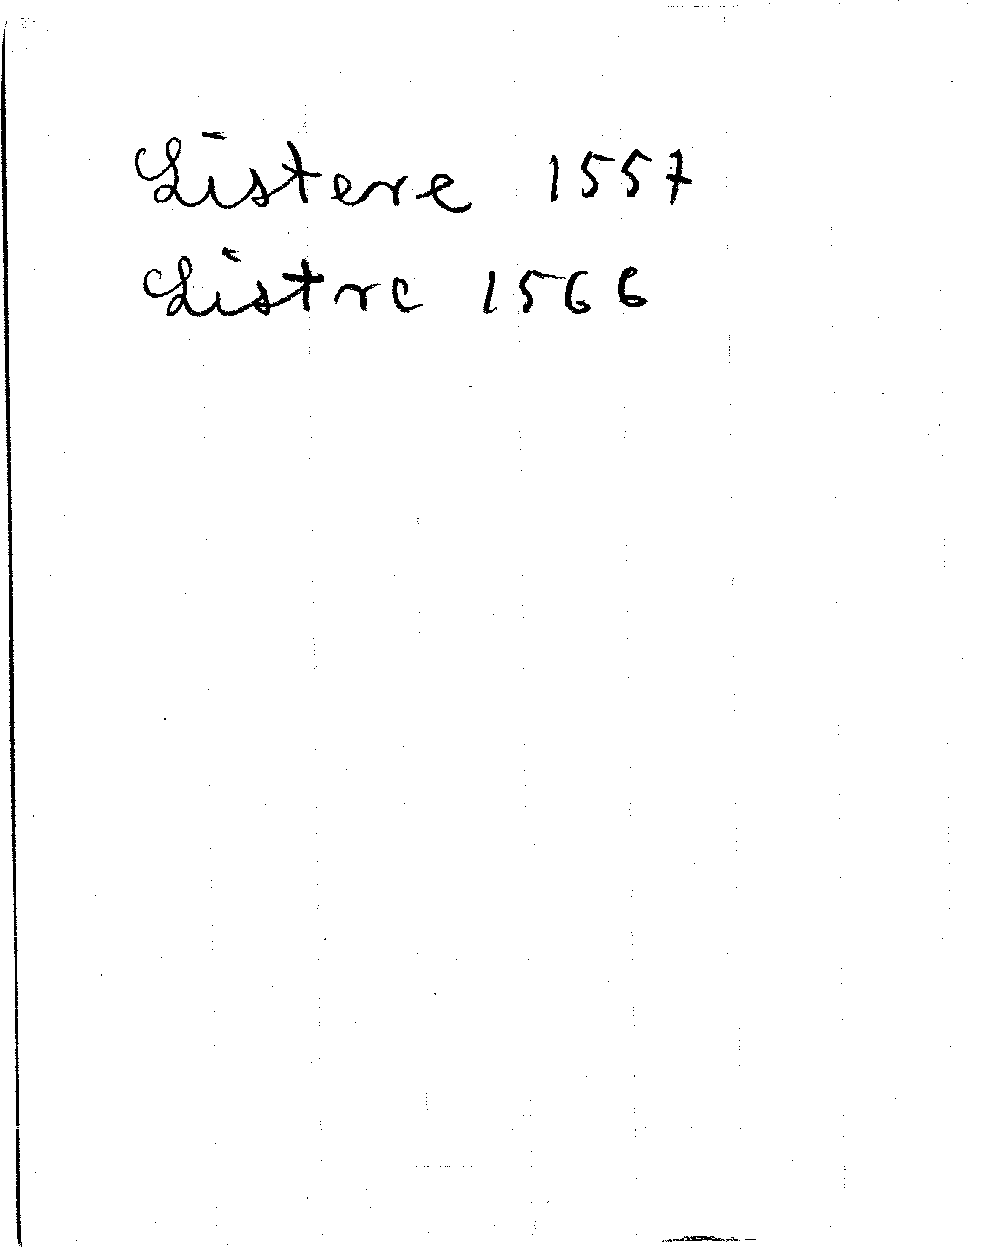 Listere 1557
Listre 1566